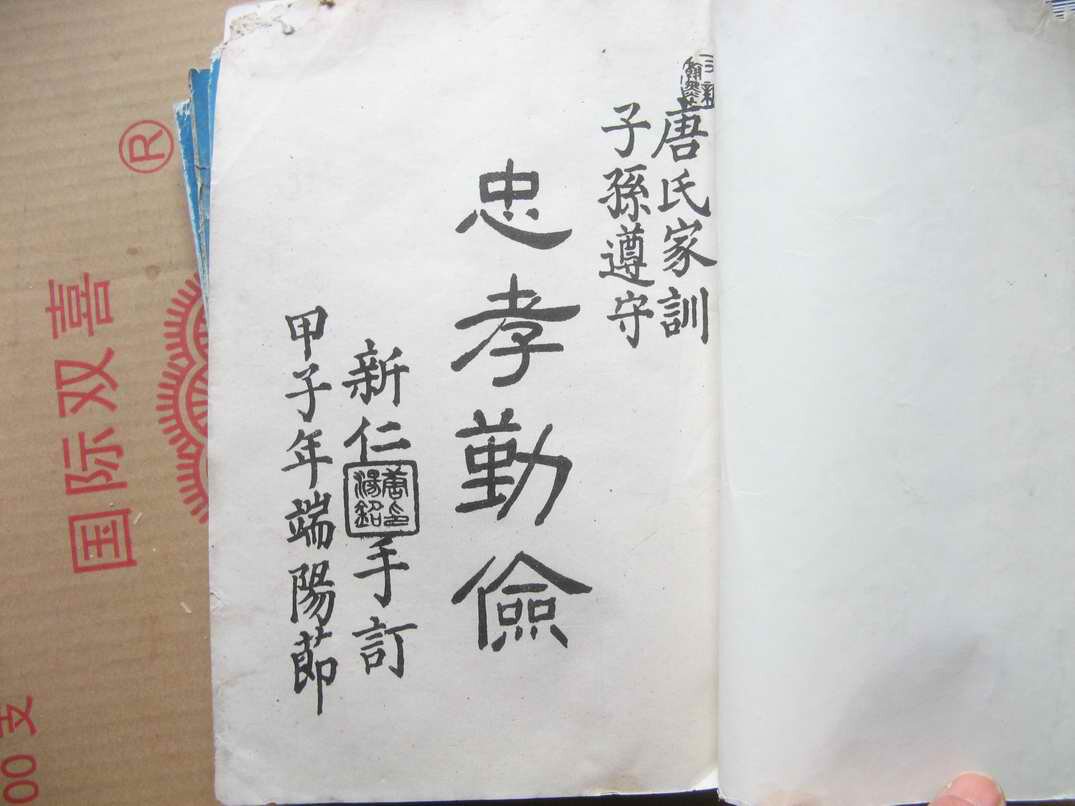 唐氏家訓
子孫遵守
忠孝勤儉
新仁手訂
甲子年端陽節
国际双喜
®
00支